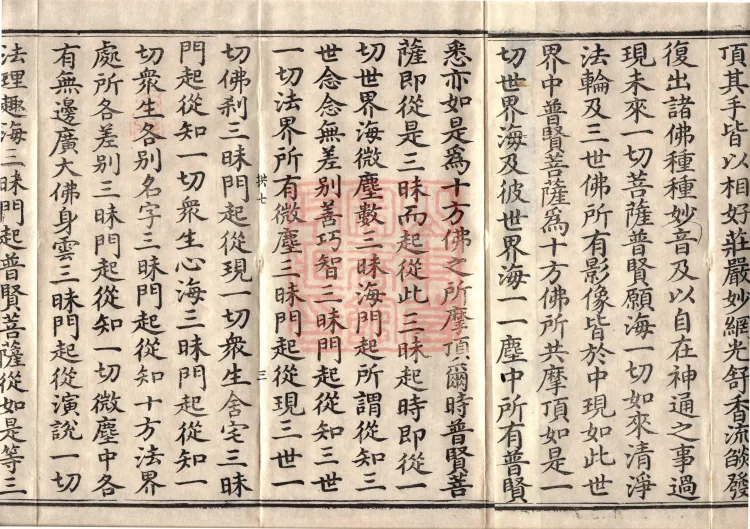 頂其手皆以相好莊嚴妙網光舒香流燄發
復出諸佛種種妙音及以自在神通之事過
現未來一切菩薩普賢願海一切如來清淨
法輪及三世佛所有影像皆於中現如此世
界中普賢菩薩爲十方佛所共摩頂如是一
切世界海及彼世界海一一塵中所有普賢
悉亦如是爲十方佛之所摩頂爾時普賢菩
薩即從是三昧而起從此三昧起時即從一
切世界海微塵數三昧海門起所謂從知三
世念念無差別善巧智三昧門起從知三世
一切法界所有微塵三昧門起從現三世一
拱七 三
切佛刹三昧門起從現一切衆生舍宅三昧
門起從知一切衆生心海三昧門起從知一
切衆生各別名字三昧門起從知十方法界
處所各差別三昧門起從知一切微塵中各
有無邊廣大佛身雲三昧門起從演說一切
法理趣海三昧門起普賢菩薩從如是等三